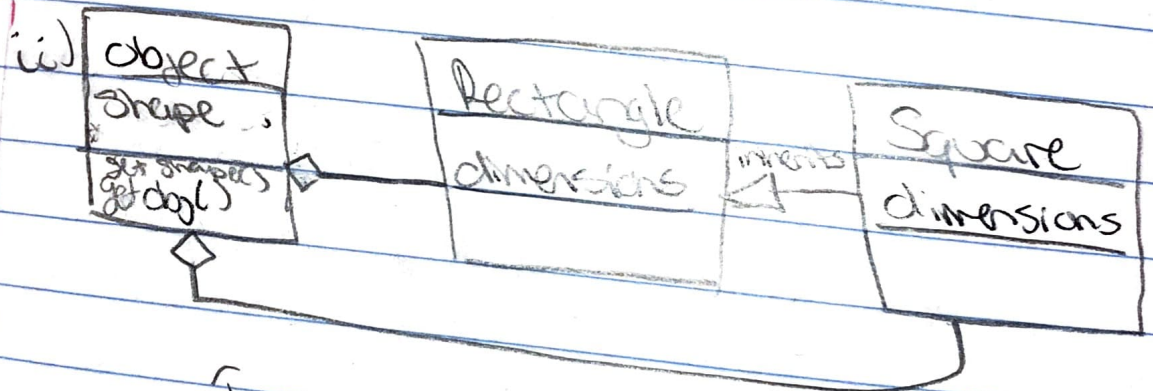 ii)
object
shape
get shape()
get dog()
Rectangle
dimensions
inherits
Square
dimensions